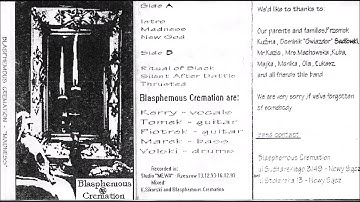 BLASPHEMOUS CREMATION "MADNESS"
Blasphemous
Cremation
Side A
Intro
Madness
New God
Side B
Ritual of Black
Silent After Battle
Thrusted
Blasphemous Cremation are:
Kerry - vocals
Tomek - guitar
Piotrek - guitar
Marek - bass
Voleki - drums
Recorded in:
Studio "MEWA"
Mixed
and Blasphemous Cremation
We'd like to thanks to:
Our parents and families, Przemek
Kuźma, Dominik "Gwiazdor"
Mr.Kazis, Mrs.Machowska, Kuba,
Majka, Monika, Ola, Łukasz
and all friends this band
We are very sorry if we've forgotten
of somebody
Band contact:
Blasphemous Cremation
- Nowy Sącz
- Nowy Sącz